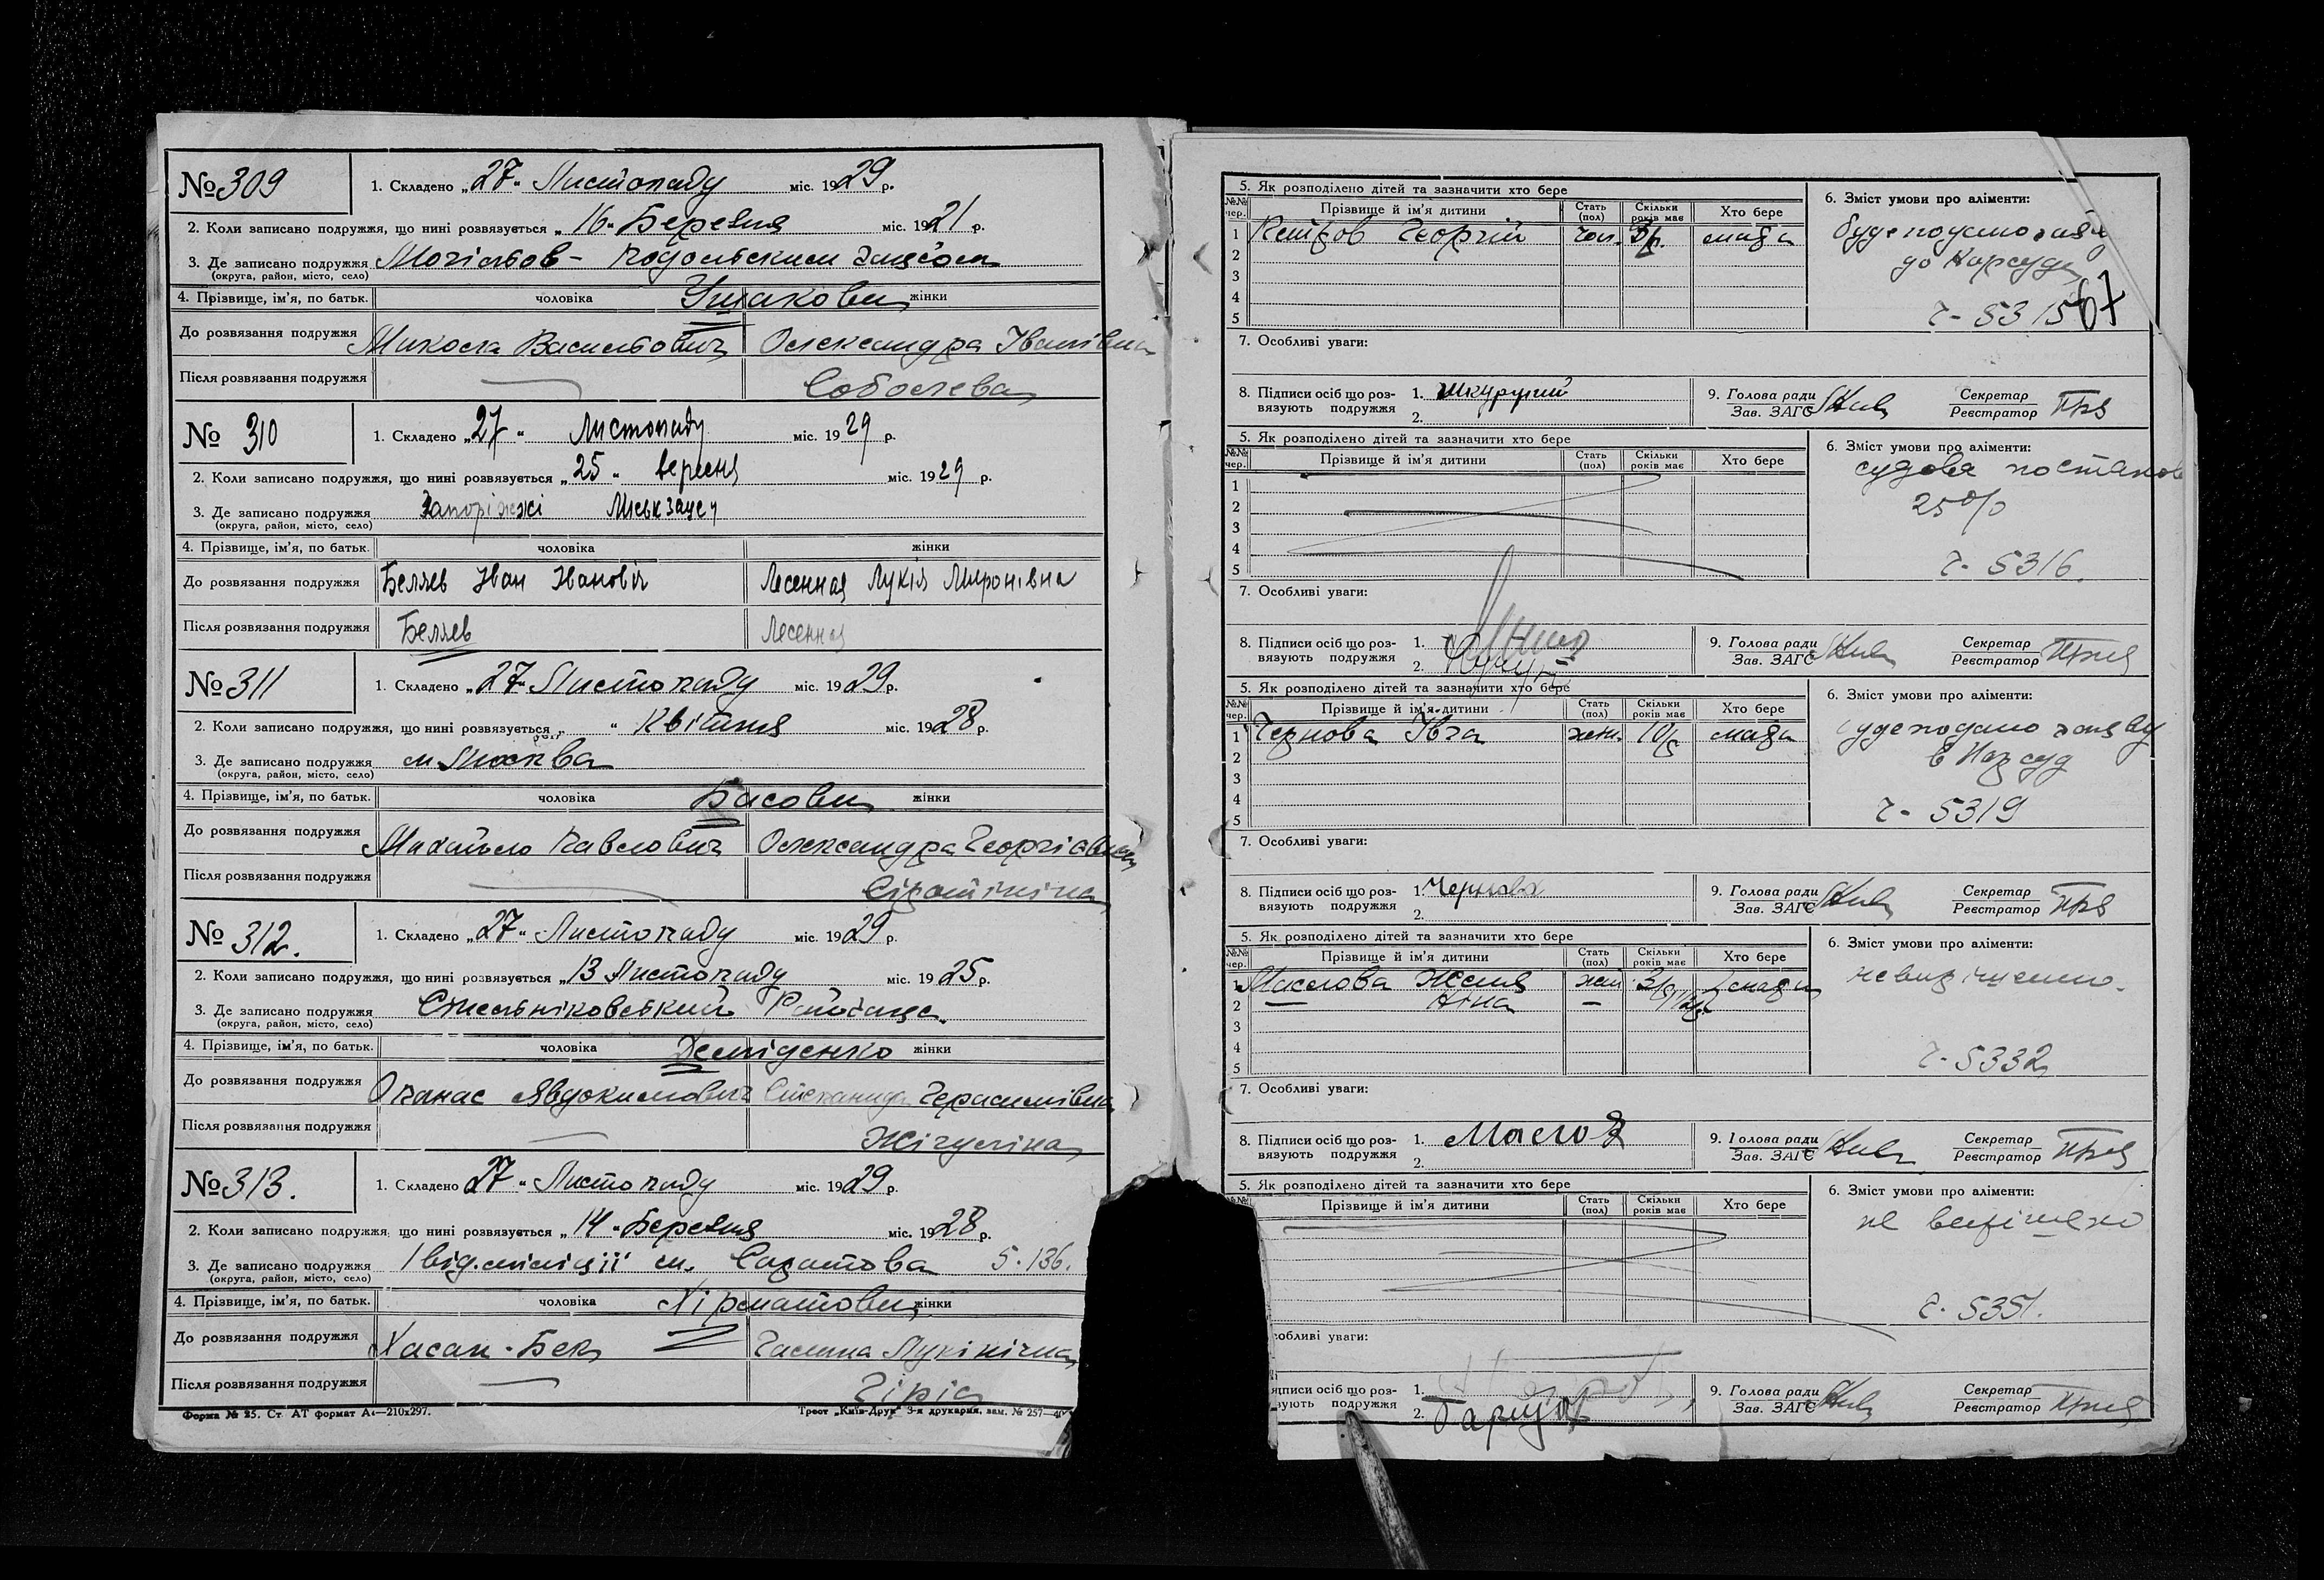 № 309
1. Складено „27“ Листопаду міс. 1929 р.
2. Коли записано подружжя, що нині розвязується „16“ Березня міс. 1921 р.
3. Де записано подружжя Могільов-Подольським Загсом
(округа, район, місто, село)
4. Прізвище, ім'я, по батьк. чоловіка Ушакови жінки
До розвязання подружжя Микола Васильович Олександра Іванівна
Після розвязання подружжя — Соболева
№ 310
1. Складено „27“ Листопаду міс. 1929 р.
2. Коли записано подружжя, що нині розвязується „25“ вересня міс. 1929 р.
3. Де записано подружжя Запоріжжі Міськзагсу
(округа, район, місто, село)
4. Прізвище, ім'я, по батьк. чоловіка жінки
До розвязання подружжя Беляев Іван Іванович Лесенная Лукія Миронівна
Після розвязання подружжя Беляев Лесенная
№ 311
1. Складено „27“ Листопаду міс. 1929 р.
2. Коли записано подружжя, що нині розвязується „ “ Квітня міс. 1928 р.
3. Де записано подружжя м Москва
(округа, район, місто, село)
4. Прізвище, ім'я, по батьк. чоловіка Басови жінки
До розвязання подружжя Михайло Павлович Олександра Георгієвна
Після розвязання подружжя — Сіротініна
№ 312.
1. Складено „27“ Листопаду міс. 1929 р.
2. Коли записано подружжя, що нині розвязується „13 Листопаду міс. 1925 р.
3. Де записано подружжя Райзагс
(округа, район, місто, село)
4. Прізвище, ім'я, по батьк. чоловіка Деміденко жінки
До розвязання подружжя Опанас Явдокимович Степанида Герасимівна
Після розвязання подружжя — Жігуліна
№ 313.
1. Складено 27“ Листопаду міс. 1929 р.
2. Коли записано подружжя, що нині розвязується „14“ Березня міс. 1928 р.
3. Де записано подружжя 1 від. міліції м. Саратова 5.136.
(округа, район, місто, село)
4. Прізвище, ім'я, по батьк. чоловіка Хірматови жінки
До розвязання подружжя Хасан-Бек Галина Лукінічна
Після розвязання подружжя —
Форма № 25. Ст. АТ формат А₄—210х297. Трест „Київ-Друк“ 3-я друкарня, зам. № 257—
5. Як розподілено дітей та зазначити хто бере
№№ чер. Прізвище й ім'я дитини Стать (пол) Скільки років має Хто бере
6. Зміст умови про аліменти:
1 Георгій чол. мати
2
3
4
5
буде подано
до Нарсуду
ч- 5315
67
7. Особливі уваги:
8. Підписи осіб що розвязують подружжя 1. 2.
9. Голова ради Зав. ЗАГС Секретар Реєстратор
5. Як розподілено дітей та зазначити хто бере
№№ чер. Прізвище й ім'я дитини Стать (пол) Скільки років має Хто бере
6. Зміст умови про аліменти:
1
2
3
4
5
судова постанов
25%
ч- 5316.
7. Особливі уваги:
8. Підписи осіб що розвязують подружжя 1. 2.
9. Голова ради Зав. ЗАГС Секретар Реєстратор
5. Як розподілено дітей та зазначити хто бере
№№ чер. Прізвище й ім'я дитини Стать (пол) Скільки років має Хто бере
6. Зміст умови про аліменти:
1 Чернова Івга жін. 10 мати
2
3
4
5
буде подано заяву
в Нарсуд
ч- 5319
7. Особливі уваги:
8. Підписи осіб що розвязують подружжя 1. Чернова 2.
9. Голова ради Зав. ЗАГС Секретар Реєстратор
5. Як розподілено дітей та зазначити хто бере
№№ чер. Прізвище й ім'я дитини Стать (пол) Скільки років має Хто бере
6. Зміст умови про аліменти:
1 Маслова Женя жін. 3 мати
2 — Ніна —
3
4
5
невирішено.
ч- 5332
7. Особливі уваги:
8. Підписи осіб що розвязують подружжя 1. 2.
9. Голова ради Зав. ЗАГС Секретар Реєстратор
5. Як розподілено дітей та зазначити хто бере
Прізвище й ім'я дитини Стать (пол) Скільки років має Хто бере
6. Зміст умови про аліменти:
не вирішено
ч- 5351.
собливі уваги:
підписи осіб що роз-
зують подружжя 1. 2.
9. Голова ради Зав. ЗАГС Секретар Реєстратор